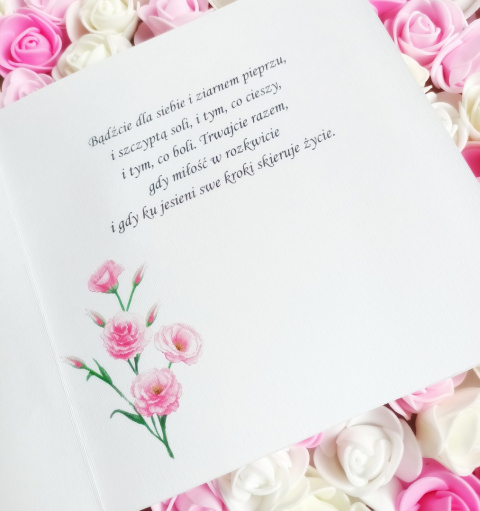 Bądźcie dla siebie i ziarnem pieprzu,
i szczyptą soli, i tym, co cieszy,
i tym, co boli. Trwajcie razem,
gdy miłość w rozkwicie
i gdy ku jesieni swe kroki skieruje życie.